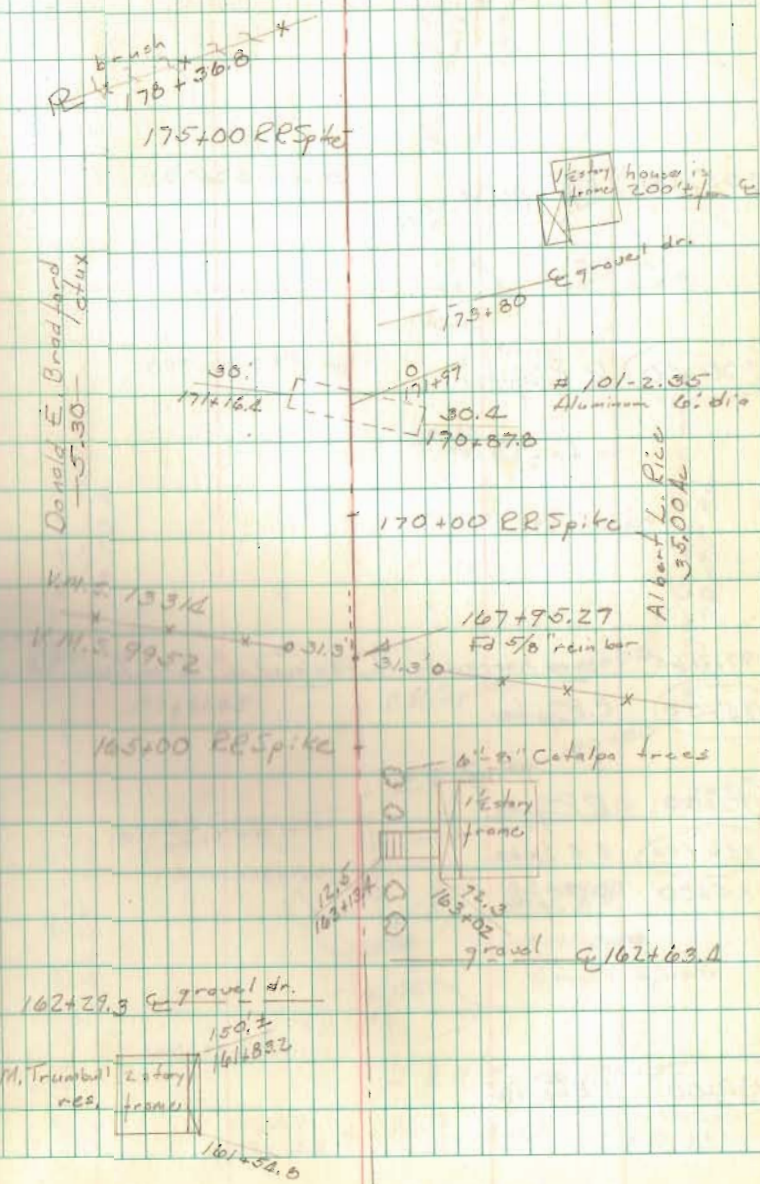 brush
PL 178+36.8
175+00 RRSpike
1½story house is
frame 200'± fr ℄
℄ gravel dr.
173+80
Donald E. Bradford
5.30
30'
171+16.4
0
171+97
30.4
170+87.8
# 101-2.35
Aluminum 6' dia
Albert L. Rice
35.00Ac
170+00 RRSpike
V.M.S. 13314
V.M.S. 9952
31.3'
31.3'
167+95.27
Fd 5/8" rein bar
165+00 RRSpike
6"-8" Catalpa trees
1½story
frame
12.5
163+13.4
72.3
163+02
gravel ℄ 162+63.4
162+29.3 ℄ gravel dr.
150.2
161+83.2
M. Trumbull
res.
2 story
frame
161+54.8